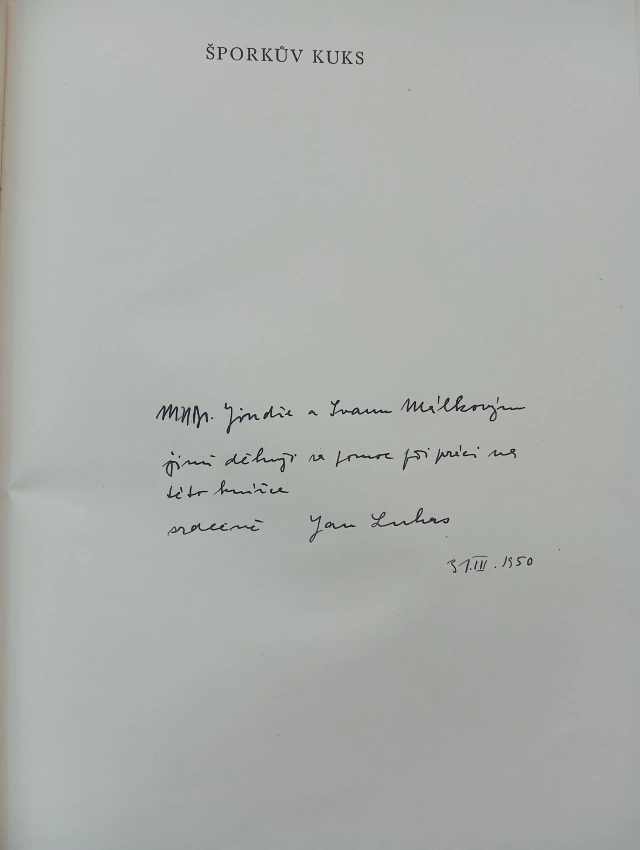 ŠPORKŮV KUKS
MUDr. Jindře a Ivanu Málkovým
jimž děkuji za pomoc při práci na
této knížce
srdečně Jan Lukas
31.III.1950